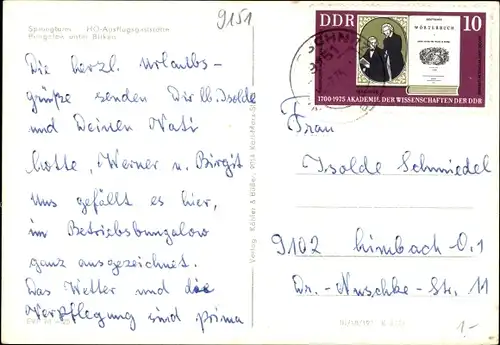 9151
HO-Ausflugsgaststätte
Pfingsten unter Birken
Die herzl. Urlaubs-
grüße senden Dir lb. Isolde
und Deinen Vati
Lotte, Werner u. Birgit
uns gefällt es hier,
im Betriebsbungalow
ganz ausgezeichnet.
Das Wetter und die
Verpflegung sind prima
DDR
10
DEUTSCHES
WÖRTERBUCH
1700-1975 AKADEMIE DER WISSENSCHAFTEN DER DDR
Frau
Isolde Schmiedel
9102 Limbach-O.1
Dr.-Nuschke-Str. 11
1.-